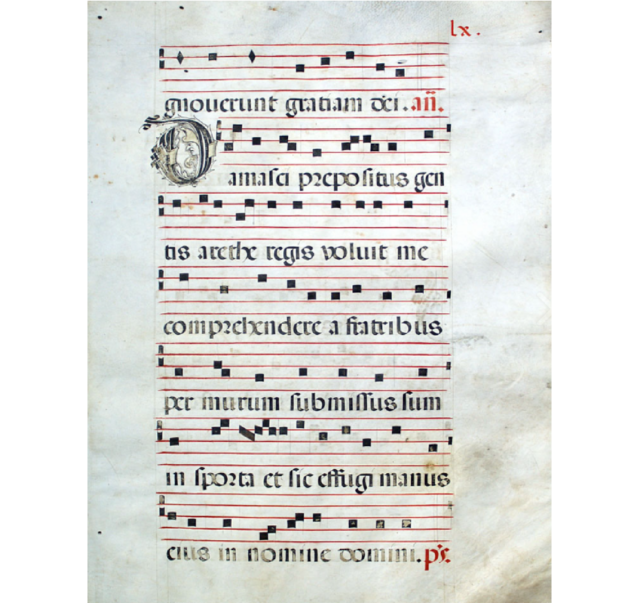 lx.
gnoverunt gratiam dei. añ.
Damasci prepositus gen
tis arethe regis voluit me
comprehendere a fratribus
per murum submissus sum
in sporta et sic effugi manus
eius in nomine domini. ps.